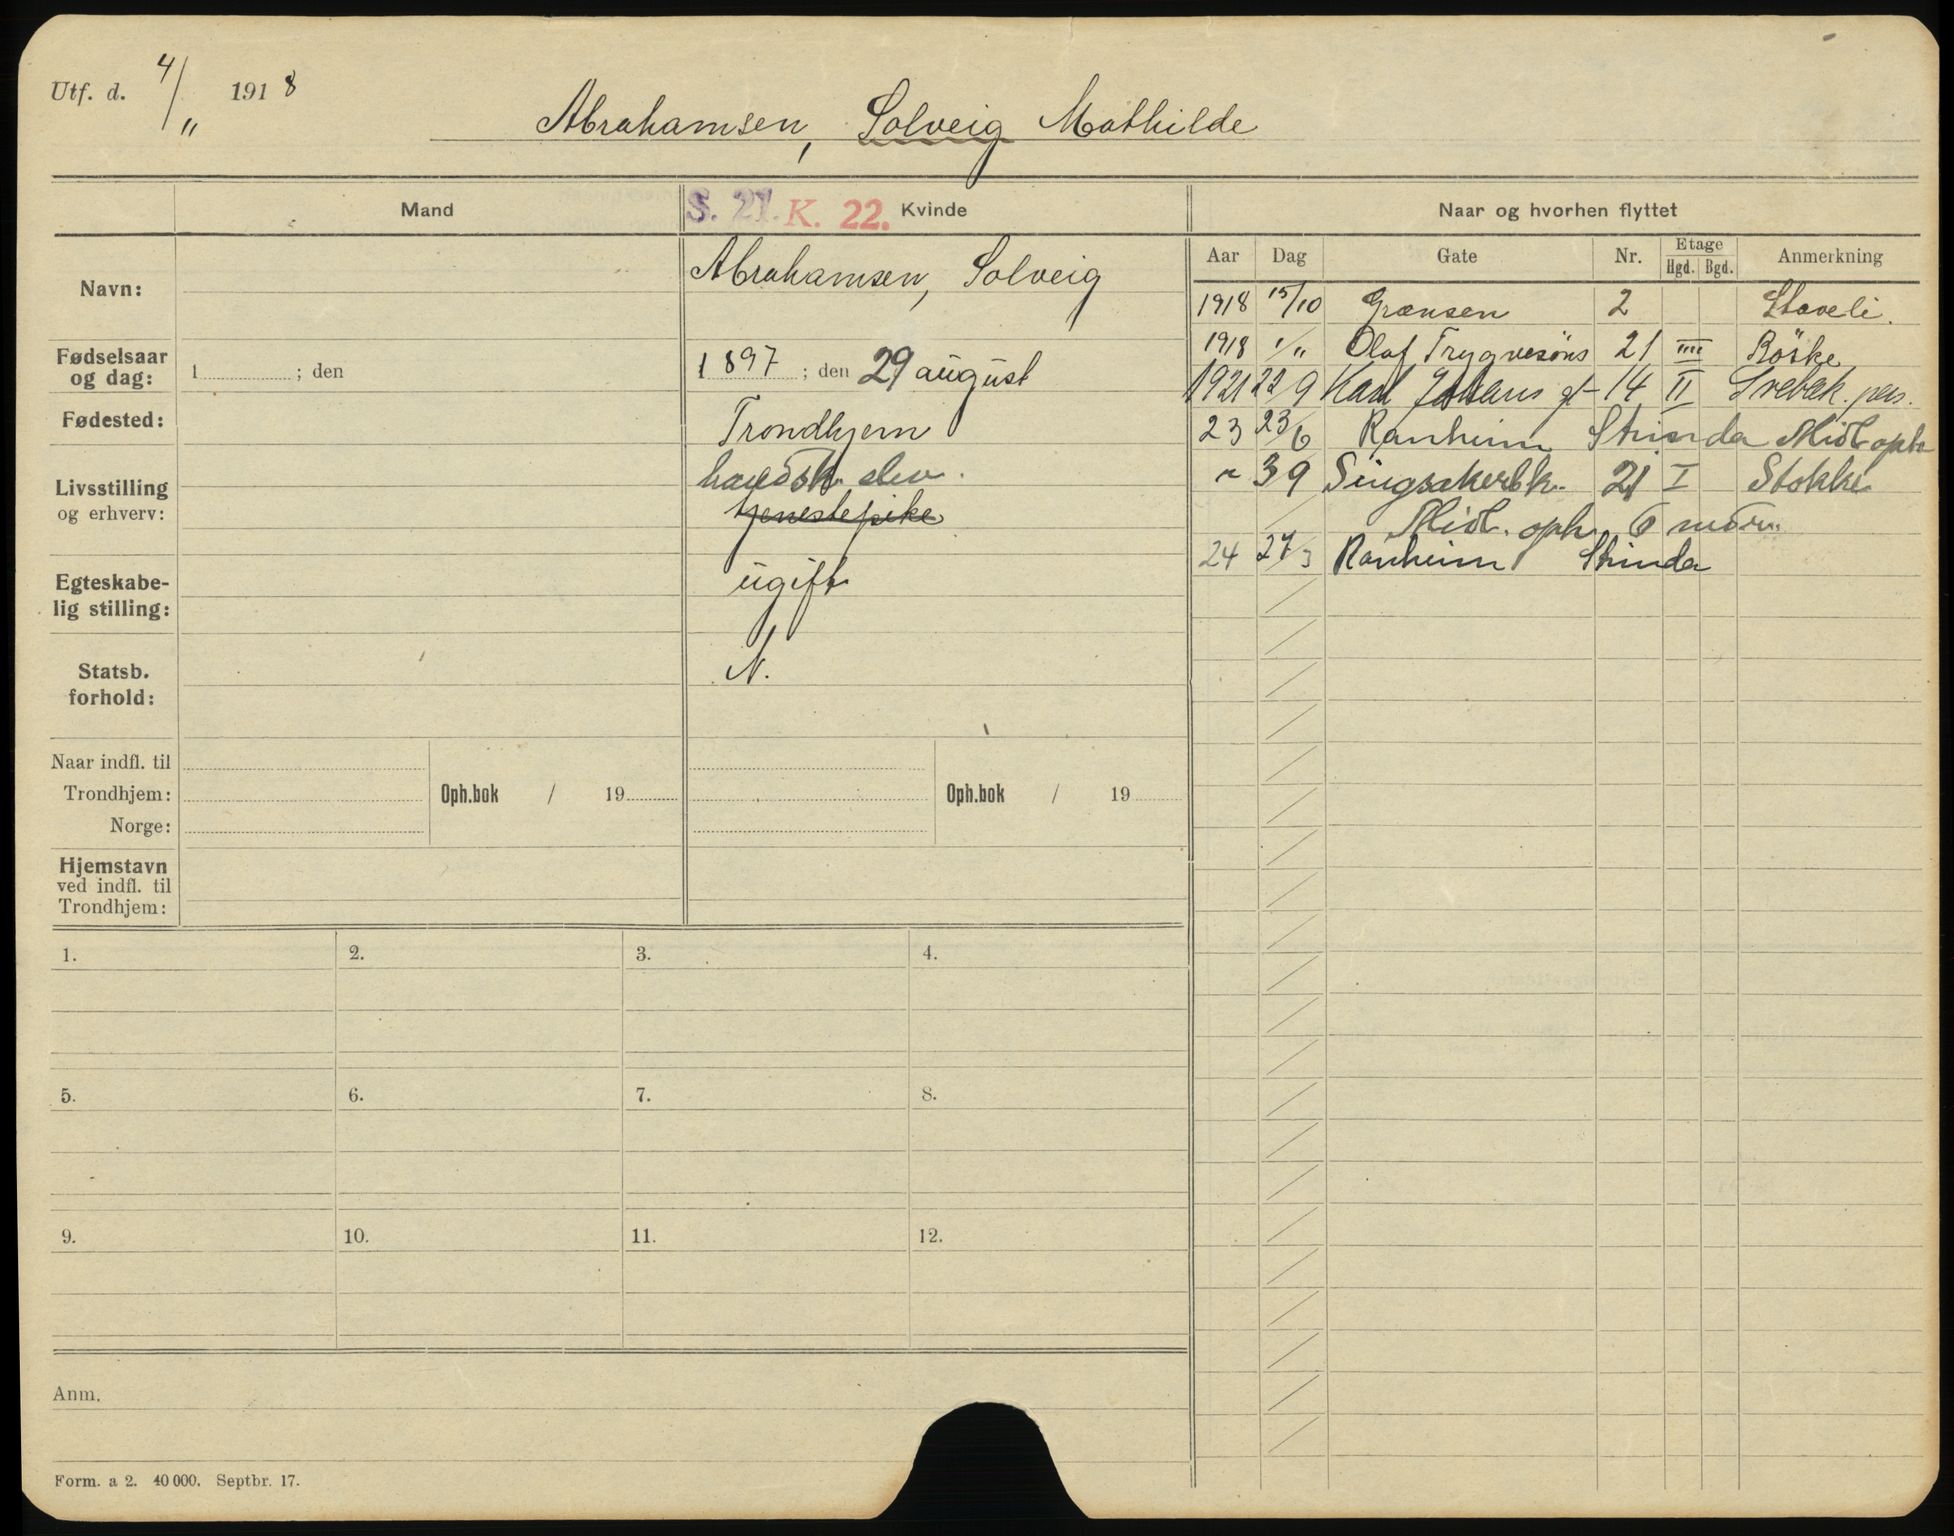 Utf. d. 4/" 1918
Abrahamsen, Solveig Mathilde
Mand
S. 21. K. 22. Kvinde
Naar og hvorhen flyttet
Aar Dag Gate Nr. Etage Anmerkning
Hgd. Bgd.
Navn:
Abrahamsen, Solveig
Fødselsaar
og dag:
1 ; den
1897 ; den 29 august
Fødested:
Trondhjem
Livsstilling
og erhverv:
elev.
tjenestepike
Egteskabe-
lig stilling:
ugift
Statsb.
forhold:
N.
Naar indfl. til
Trondhjem:
Norge:
Oph.bok / 19
Oph.bok / 19
Hjemstavn
ved indfl. til
Trondhjem:
1918 15/10 Grænsen 2 Staveli.
1918 1/" Olaf Trygvesøns 21 IIII Röske
1921 22/9 Karl Johans gt 14 II Svebak. pens.
23 23/6 Ranheim Strinda Midl oph
" 3/9 Singsakerbk. 21 I Stokke
Midl. oph. 6 mdr.
24 27/3 Ranheim Strinda
1. 2. 3. 4.
5. 6. 7. 8.
9. 10. 11. 12.
Anm.
Form. a 2. 40 000. Septbr. 17.